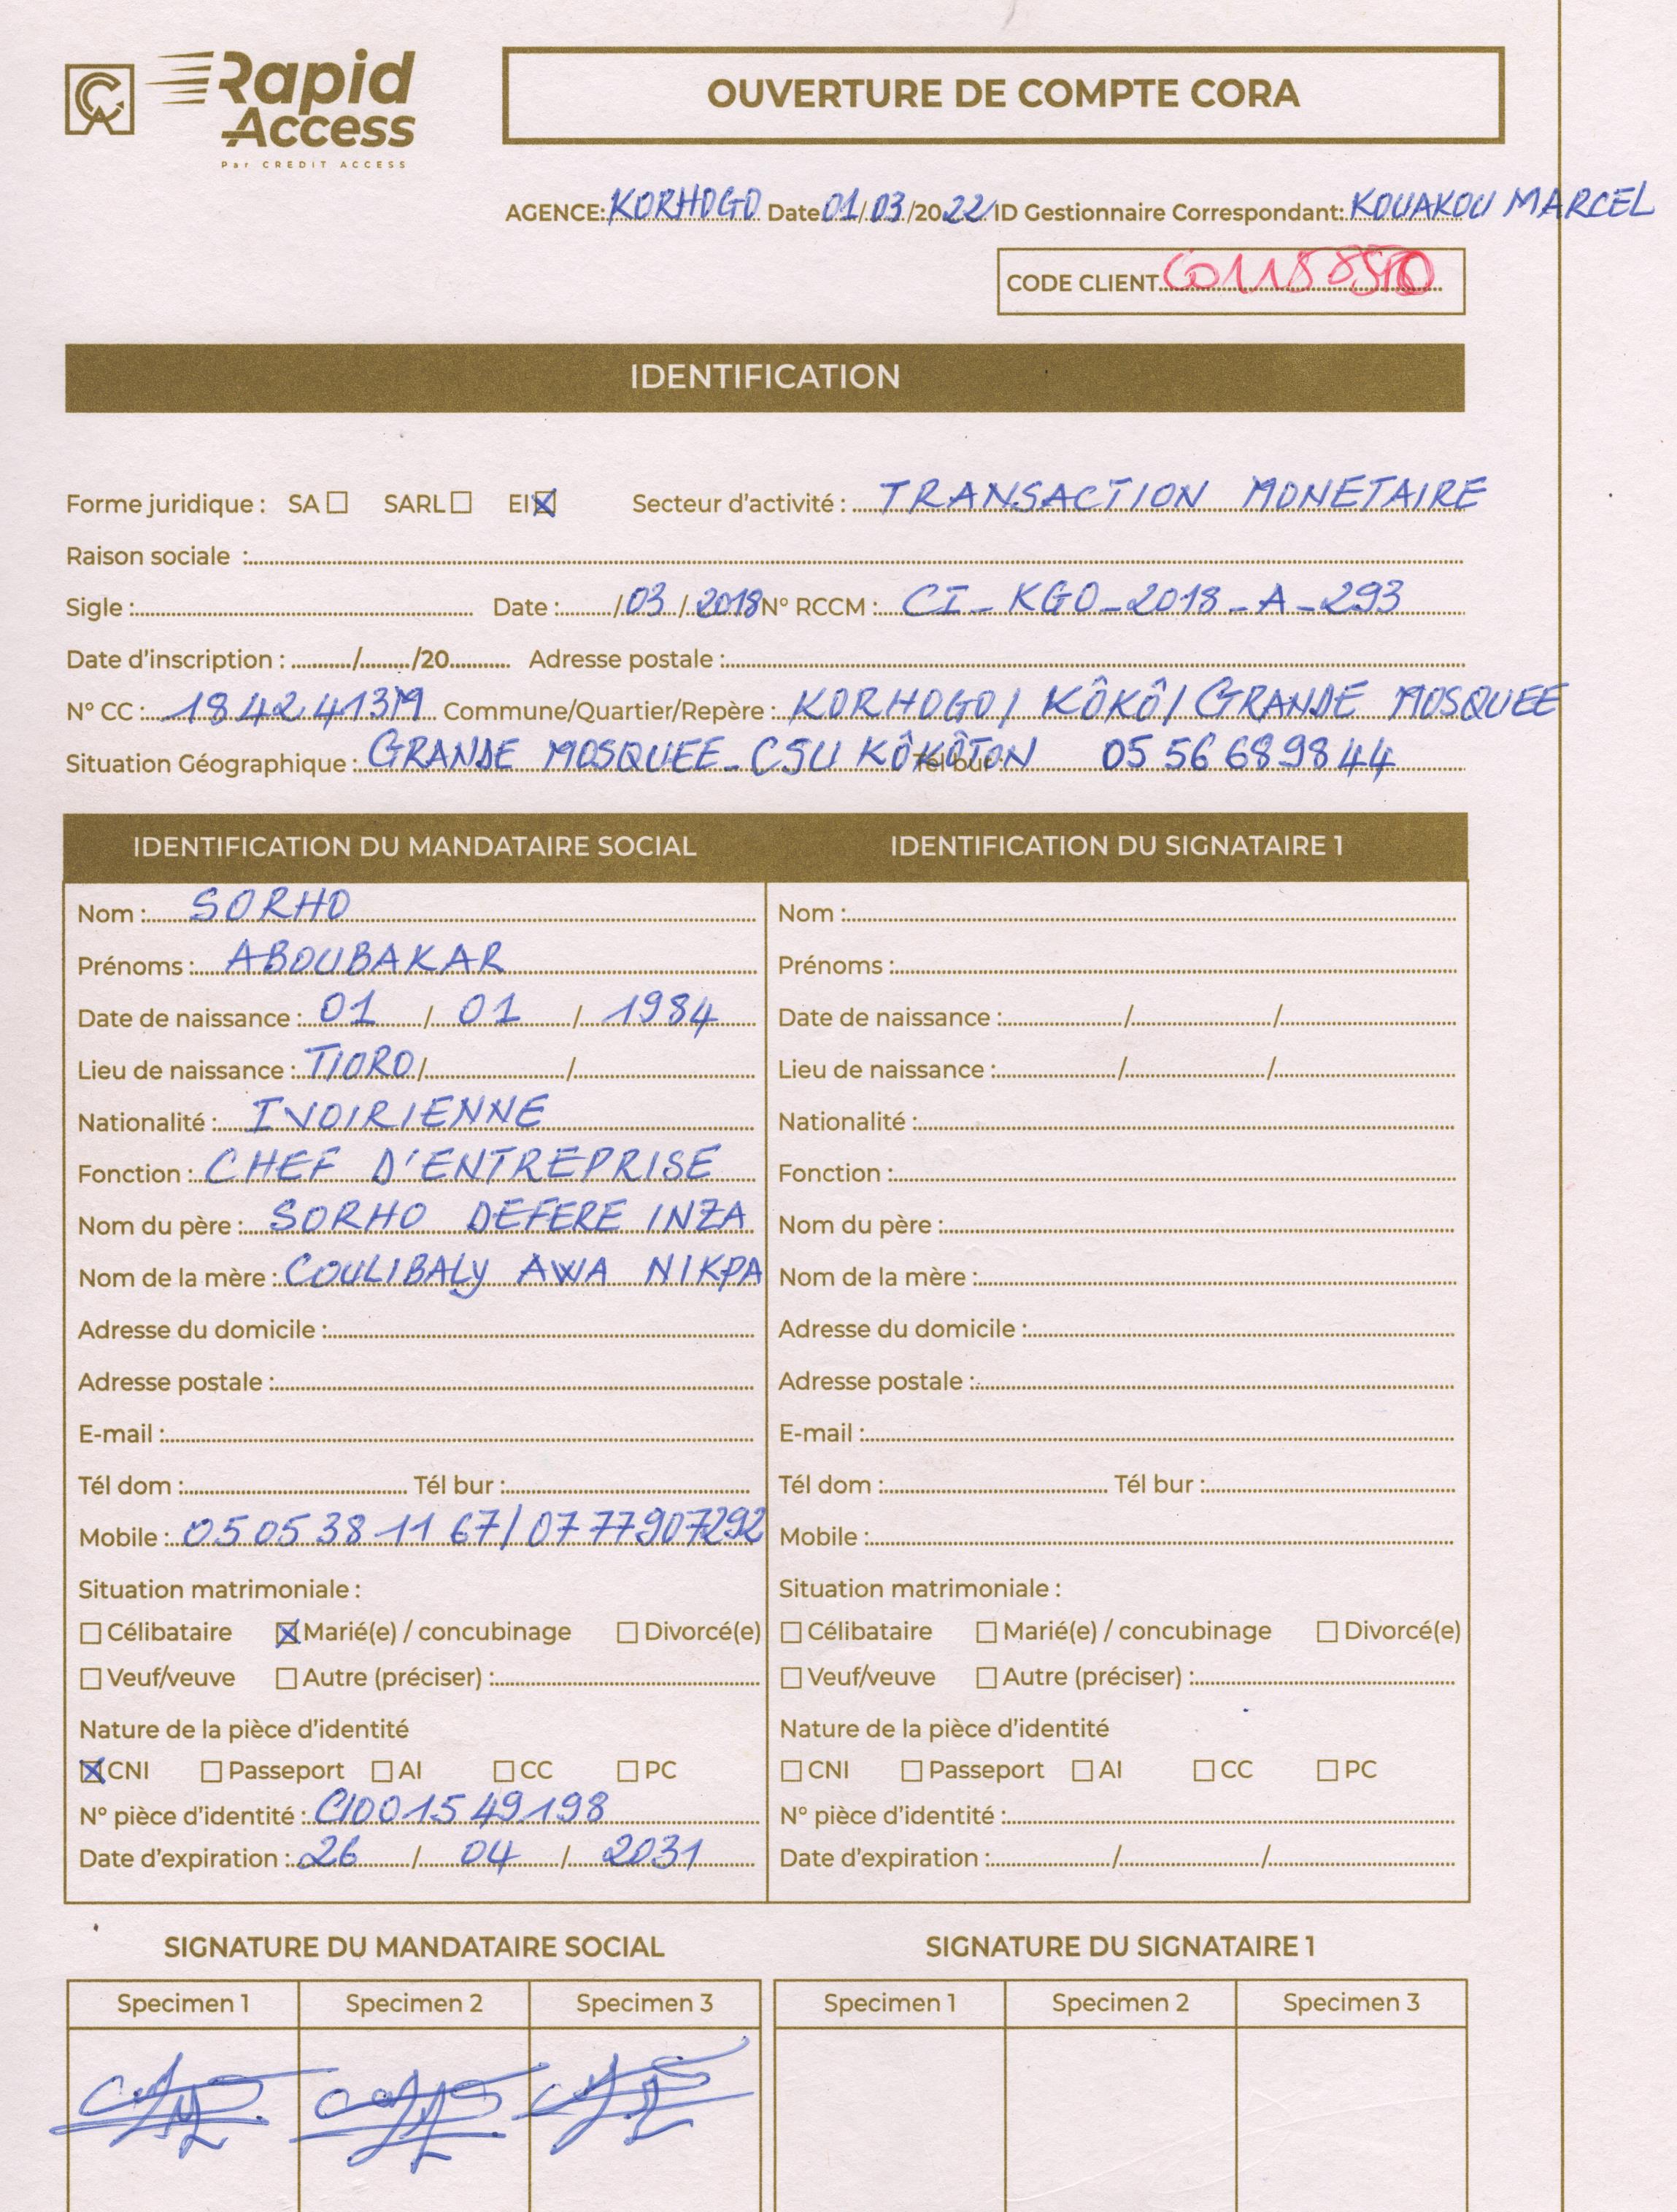 Rapid
Access
Par CREDIT ACCESS
OUVERTURE DE COMPTE CORA
AGENCE: KORHOGO Date 01/03/2022 ID Gestionnaire Correspondant: KOUAKOU MARCEL
CODE CLIENT
IDENTIFICATION
Forme juridique : SA ☐ SARL ☐ EI ☒ Secteur d'activité : TRANSACTION MONETAIRE
Raison sociale :
Sigle : Date : /03/2018 N° RCCM : CI-KGO-2018-A-293
Date d'inscription : / /20 Adresse postale :
N° CC : Commune/Quartier/Repère : KORHOGO/ KÔKÔ/ GRANDE MOSQUEE
Situation Géographique : GRANDE MOSQUEE-CSU KÔKÔTON Tél bur : 05 56 68 98 44
IDENTIFICATION DU MANDATAIRE SOCIAL
Nom : SORHO
Prénoms : ABOUBAKAR
Date de naissance : 01 / 01 / 1984
Lieu de naissance : TIORO / /
Nationalité : IVOIRIENNE
Fonction : CHEF D'ENTREPRISE
Nom du père : SORHO DEFERE INZA
Nom de la mère : COULIBALY AWA NIKPA
Adresse du domicile :
Adresse postale :
E-mail :
Tél dom : Tél bur :
Mobile : 05 05 38 11 67/ 07 77907292
Situation matrimoniale :
☐ Célibataire ☒ Marié(e) / concubinage ☐ Divorcé(e)
☐ Veuf/veuve ☐ Autre (préciser) :
Nature de la pièce d'identité
☒ CNI ☐ Passeport ☐ AI ☐ CC ☐ PC
N° pièce d'identité : CI001549198
Date d'expiration : 26 / 04 / 2031
IDENTIFICATION DU SIGNATAIRE 1
Nom :
Prénoms :
Date de naissance : / /
Lieu de naissance : / /
Nationalité :
Fonction :
Nom du père :
Nom de la mère :
Adresse du domicile :
Adresse postale :
E-mail :
Tél dom : Tél bur :
Mobile :
Situation matrimoniale :
☐ Célibataire ☐ Marié(e) / concubinage ☐ Divorcé(e)
☐ Veuf/veuve ☐ Autre (préciser) :
Nature de la pièce d'identité
☐ CNI ☐ Passeport ☐ AI ☐ CC ☐ PC
N° pièce d'identité :
Date d'expiration : / /
SIGNATURE DU MANDATAIRE SOCIAL
Specimen 1 Specimen 2 Specimen 3
SIGNATURE DU SIGNATAIRE 1
Specimen 1 Specimen 2 Specimen 3